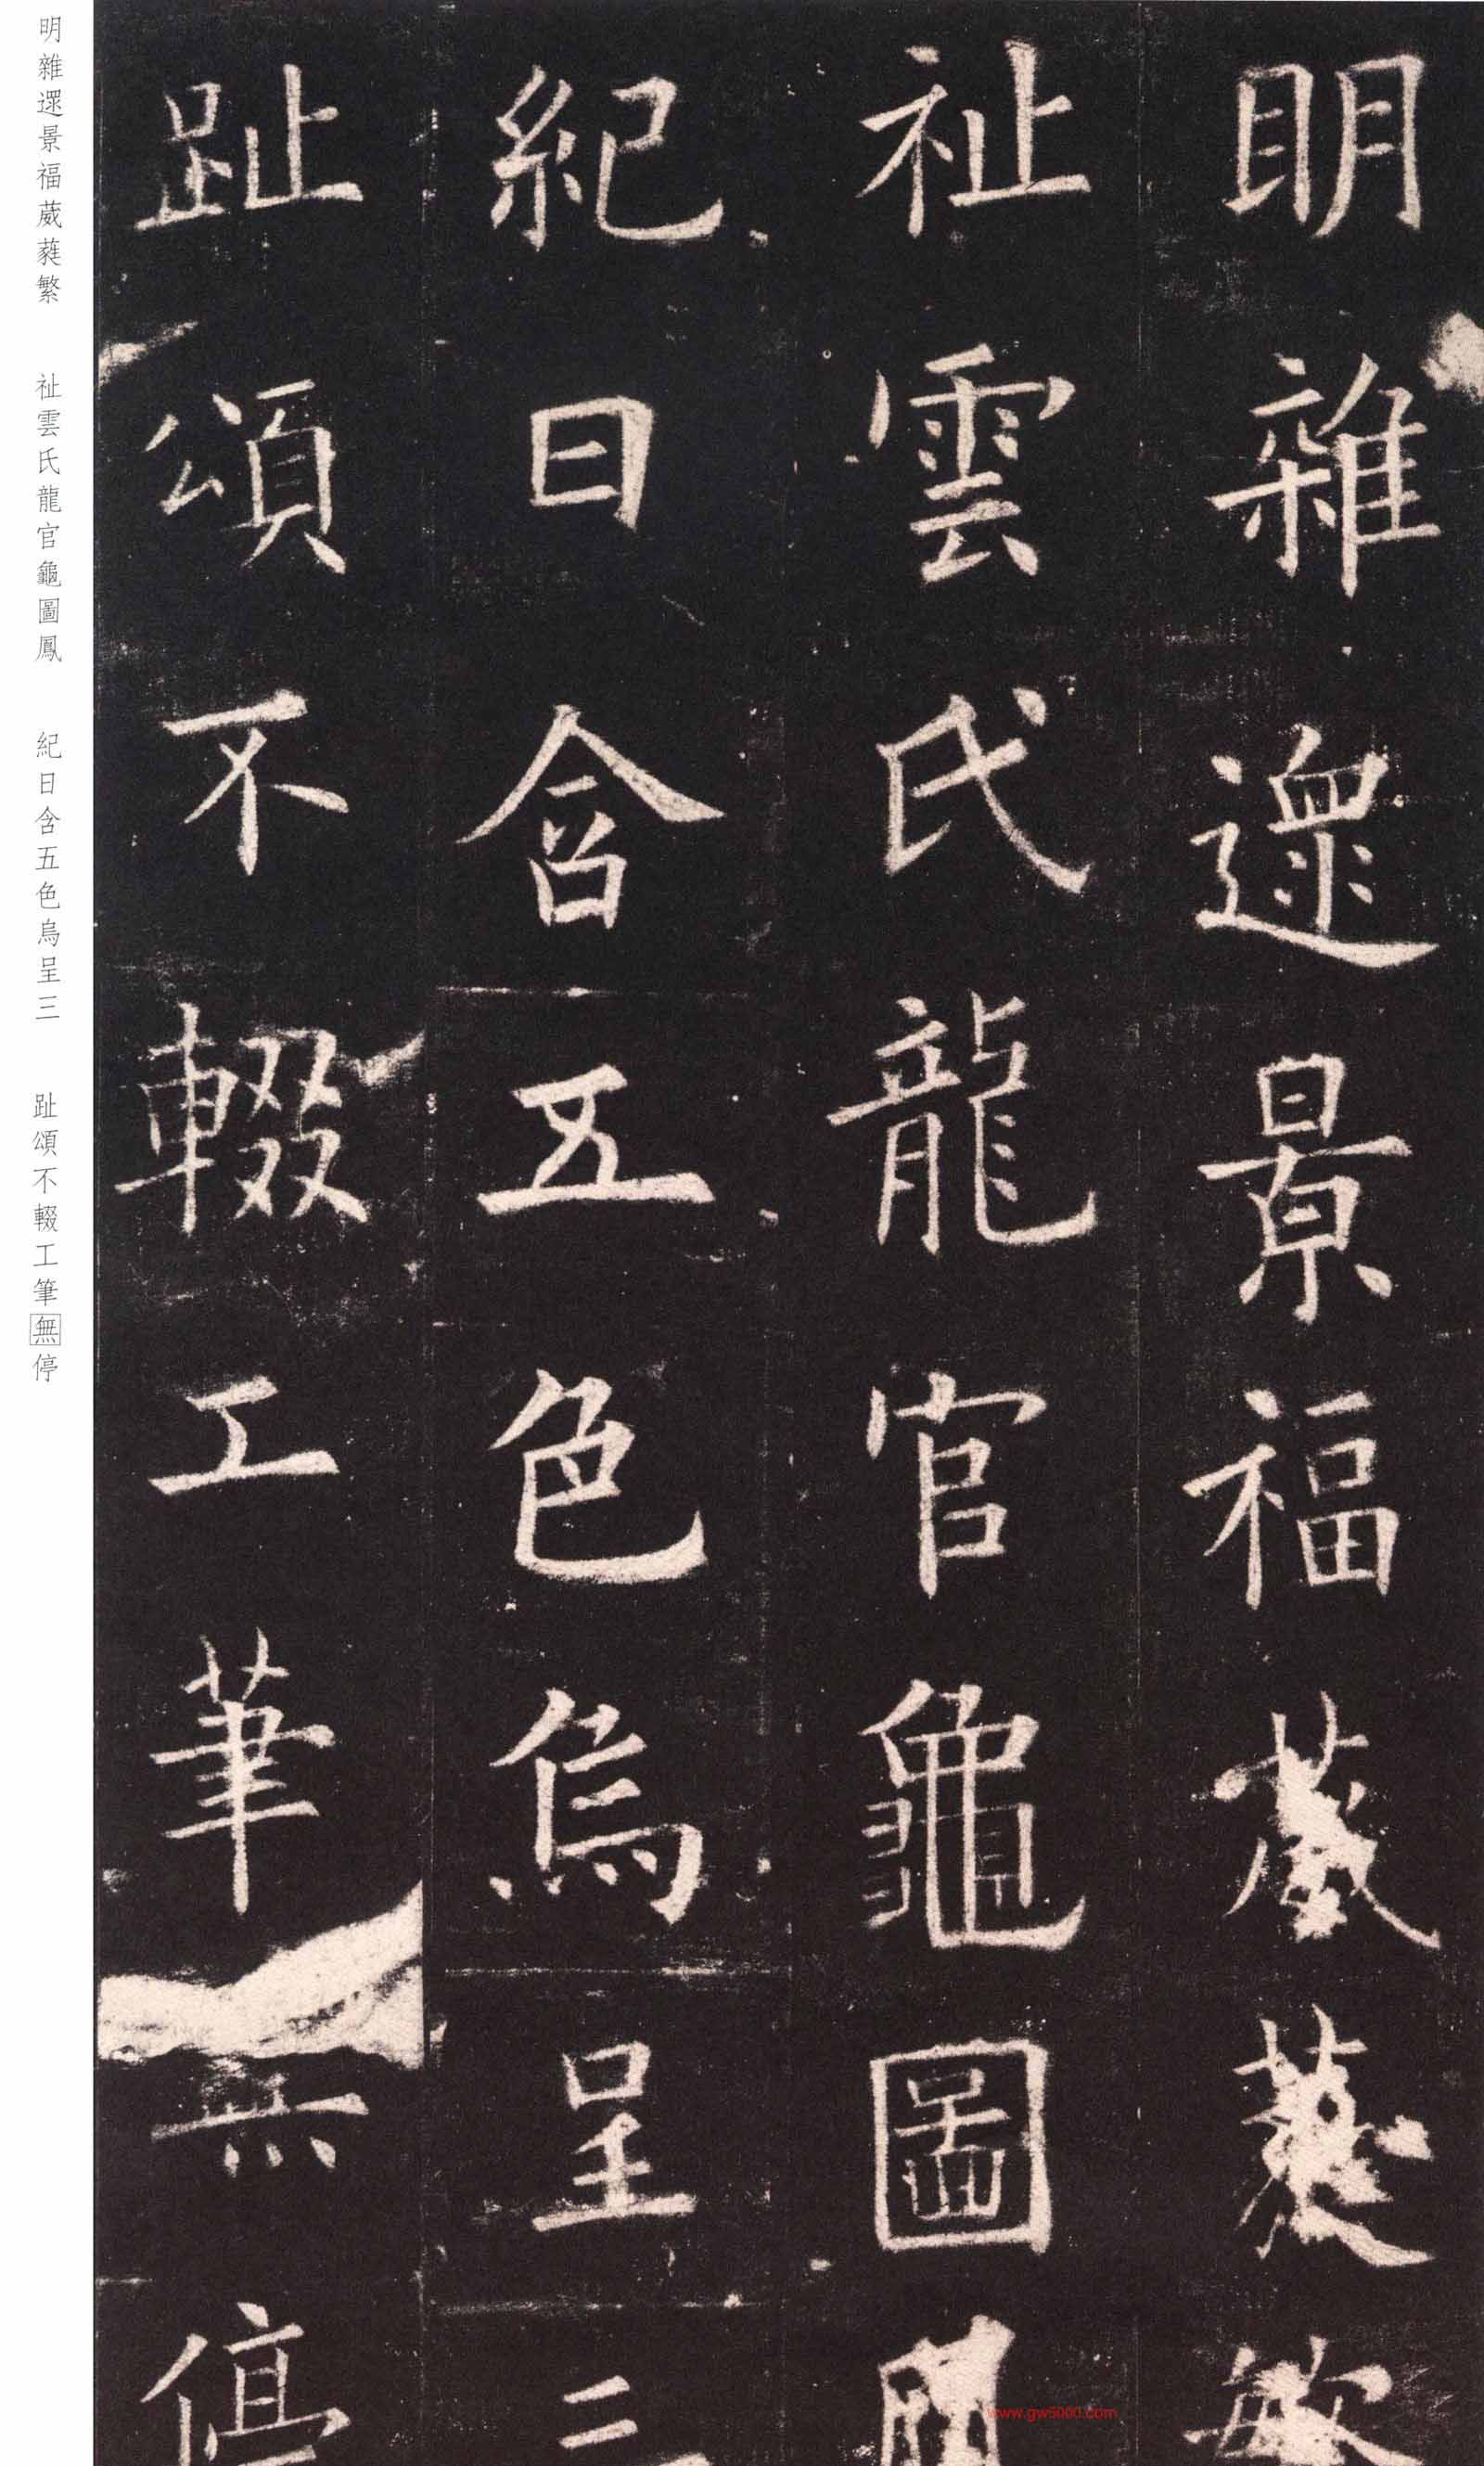 明雜遝景福葳蕤繁
祉雲氏龍官龜圖鳳
紀日含五色烏呈三
趾頌不輟工筆無停
明雜遝景福葳蕤繁 祉雲氏龍官龜圖鳳 紀日含五色烏呈三 趾頌不輟工筆無停
www.gw5000.com